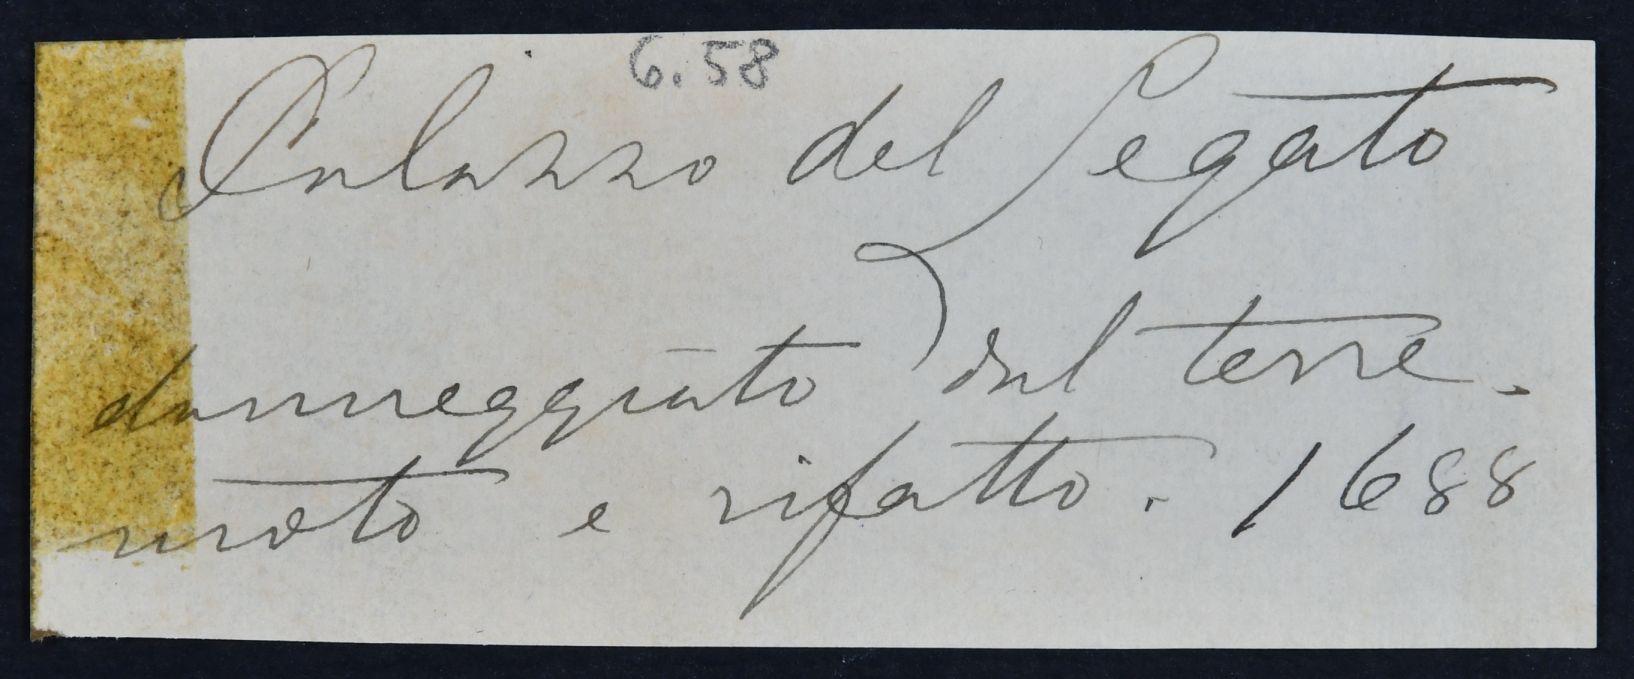 6.58
Palazzo del Legato
danneggiato dal terre-
moto e rifatto. 1688